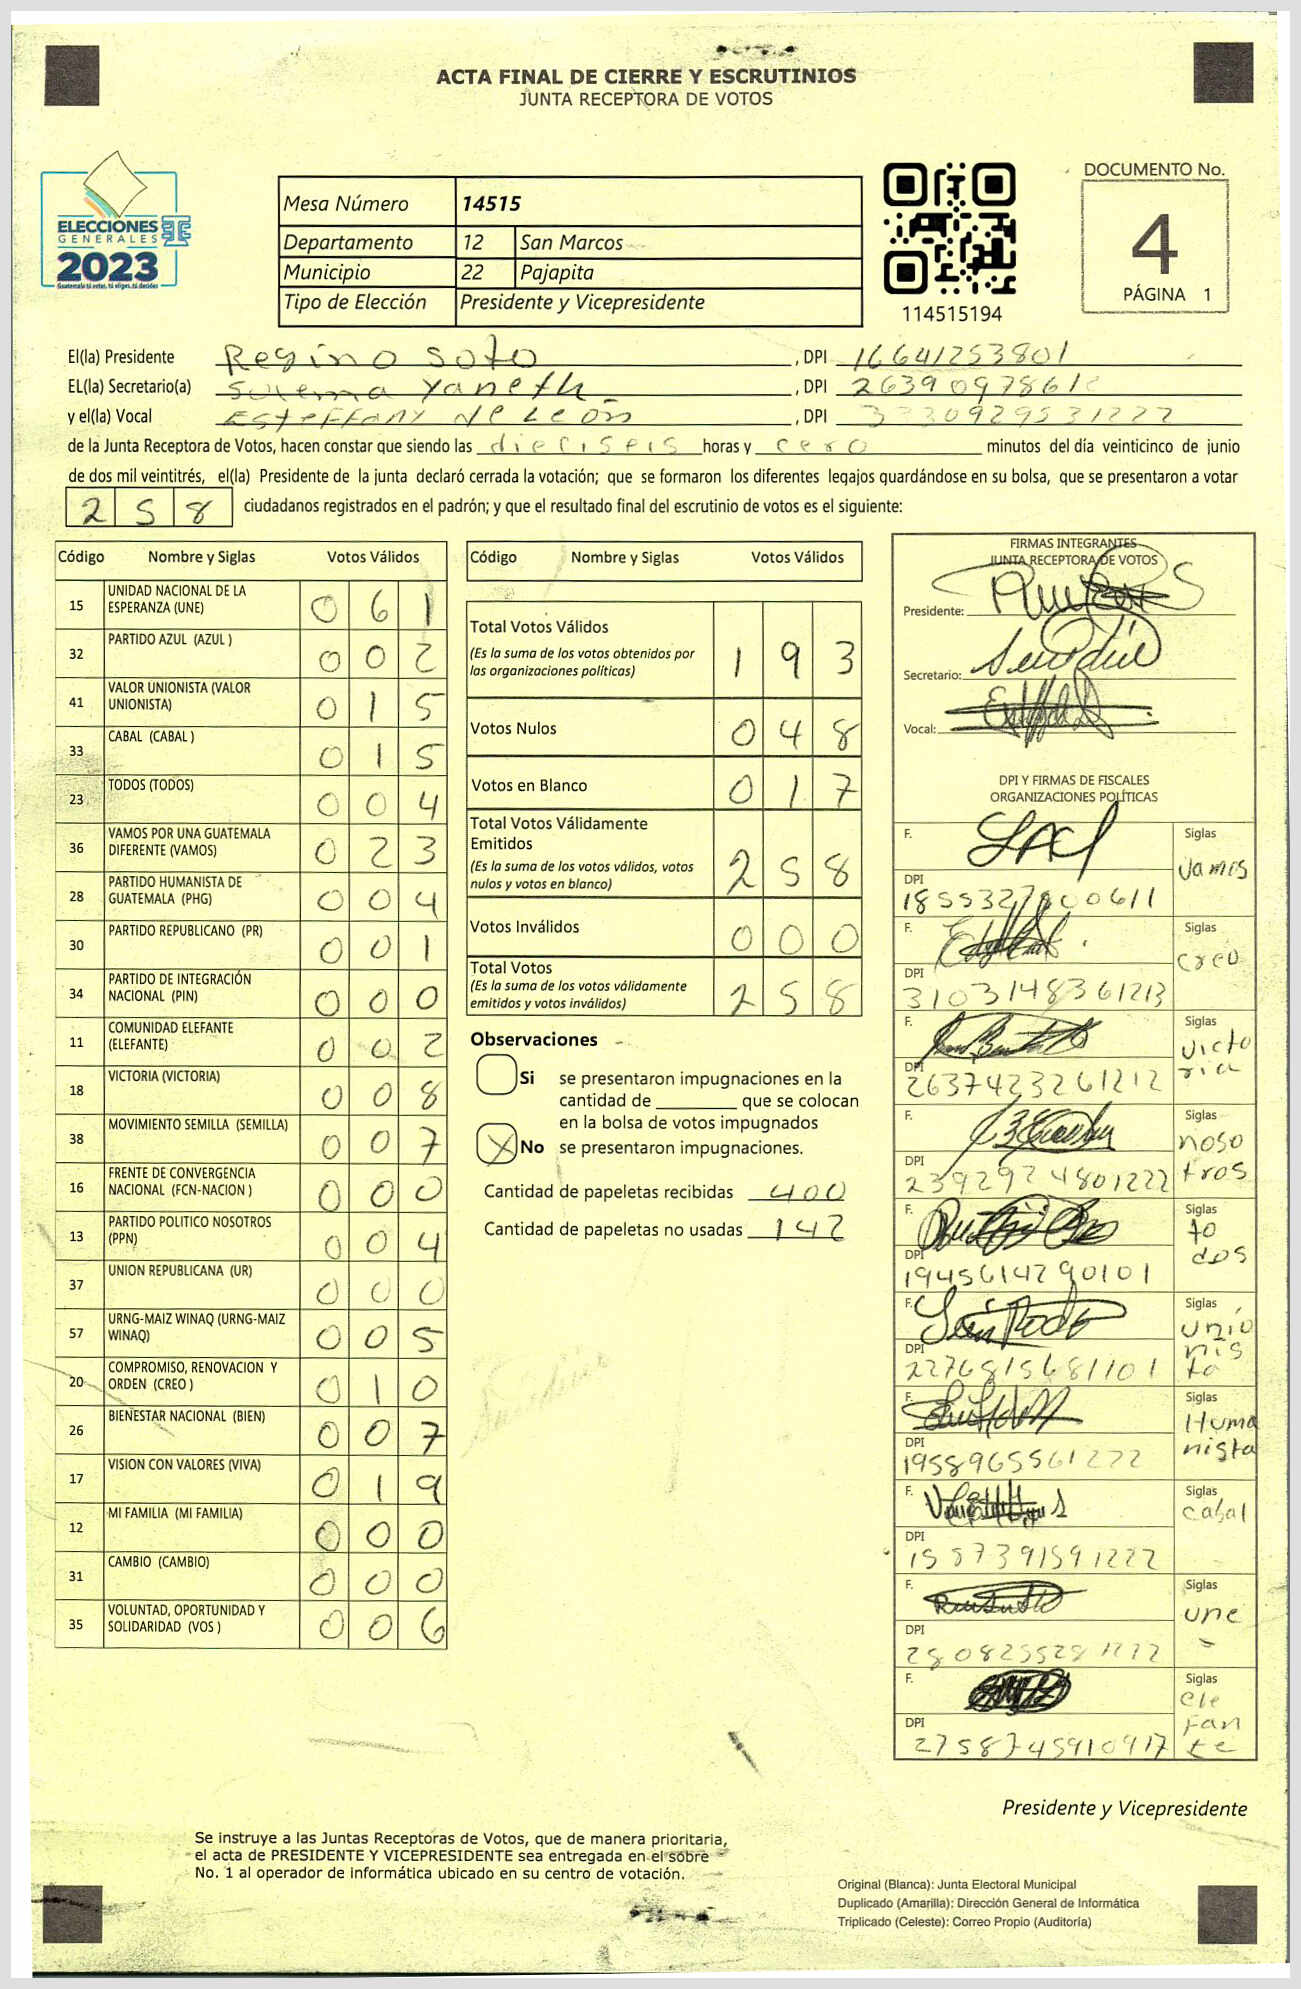 ACTA FINAL DE CIERRE Y ESCRUTINIOS
JUNTA RECEPTORA DE VOTOS
ELECCIONES
GENERALES
2023
Guatemala tú votas, tú eliges, tú decides
Mesa Número 14515
Departamento 12 San Marcos
Municipio 22 Pajapita
Tipo de Elección Presidente y Vicepresidente
114515194
DOCUMENTO No.
4
PÁGINA 1
El(la) Presidente Regino Soto, DPI 16641253801
EL(la) Secretario(a) Sulema Yaneth, DPI
y el(la) Vocal Esteffany de León, DPI 3330929531222
de la Junta Receptora de Votos, hacen constar que siendo las dieciseis horas y cero minutos del día veinticinco de junio
de dos mil veintitrés, el(la) Presidente de la junta declaró cerrada la votación; que se formaron los diferentes legajos quardándose en su bolsa, que se presentaron a votar
258 ciudadanos registrados en el padrón; y que el resultado final del escrutinio de votos es el siguiente:
Código Nombre y Siglas Votos Válidos
15 UNIDAD NACIONAL DE LA ESPERANZA (UNE) 061
32 PARTIDO AZUL (AZUL ) 002
41 VALOR UNIONISTA (VALOR UNIONISTA) 015
33 CABAL (CABAL ) 015
23 TODOS (TODOS) 004
36 VAMOS POR UNA GUATEMALA DIFERENTE (VAMOS) 023
28 PARTIDO HUMANISTA DE GUATEMALA (PHG) 004
30 PARTIDO REPUBLICANO (PR) 001
34 PARTIDO DE INTEGRACIÓN NACIONAL (PIN) 000
11 COMUNIDAD ELEFANTE (ELEFANTE) 002
18 VICTORIA (VICTORIA) 008
38 MOVIMIENTO SEMILLA (SEMILLA) 007
16 FRENTE DE CONVERGENCIA NACIONAL (FCN-NACION ) 000
13 PARTIDO POLITICO NOSOTROS (PPN) 004
37 UNION REPUBLICANA (UR) 000
57 URNG-MAIZ WINAQ (URNG-MAIZ WINAQ) 005
20 COMPROMISO, RENOVACION Y ORDEN (CREO ) 010
26 BIENESTAR NACIONAL (BIEN) 007
17 VISION CON VALORES (VIVA) 019
12 MI FAMILIA (MI FAMILIA) 000
31 CAMBIO (CAMBIO) 000
35 VOLUNTAD, OPORTUNIDAD Y SOLIDARIDAD (VOS ) 006
Código Nombre y Siglas Votos Válidos
Total Votos Válidos 193
(Es la suma de los votos obtenidos por
las organizaciones políticas)
Votos Nulos 048
Votos en Blanco 017
Total Votos Válidamente
Emitidos 258
(Es la suma de los votos válidos, votos
nulos y votos en blanco)
Votos Inválidos 000
Total Votos 258
(Es la suma de los votos válidamente
emitidos y votos inválidos)
Observaciones
Si se presentaron impugnaciones en la
cantidad de ________ que se colocan
en la bolsa de votos impugnados
X No se presentaron impugnaciones.
Cantidad de papeletas recibidas 400
Cantidad de papeletas no usadas 142
FIRMAS INTEGRANTES
JUNTA RECEPTORA DE VOTOS
Presidente:
Secretario:
Vocal:
DPI Y FIRMAS DE FISCALES
ORGANIZACIONES POLÍTICAS
F. Siglas
Vamos
DPI
F. Siglas
creo
DPI 3103148361213
F. Siglas
victo
ria
DPI 2637423261212
F. Siglas
noso
tros
DPI 2392924801222
F. Siglas
to
dos
DPI 1945614290101
F. Siglas
unio
nis
ta
DPI 2276815681101
F. Siglas
Huma
nista
DPI 1958965561222
F. Siglas
cabal
DPI 1587391591222
F. Siglas
une
DPI
F. Siglas
ele
fan
te
DPI 2758745910917
Presidente y Vicepresidente
Se instruye a las Juntas Receptoras de Votos, que de manera prioritaria,
el acta de PRESIDENTE Y VICEPRESIDENTE sea entregada en el sobre
No. 1 al operador de informática ubicado en su centro de votación.
Original (Blanca): Junta Electoral Municipal
Duplicado (Amarilla): Dirección General de Informática
Triplicado (Celeste): Correo Propio (Auditoría)